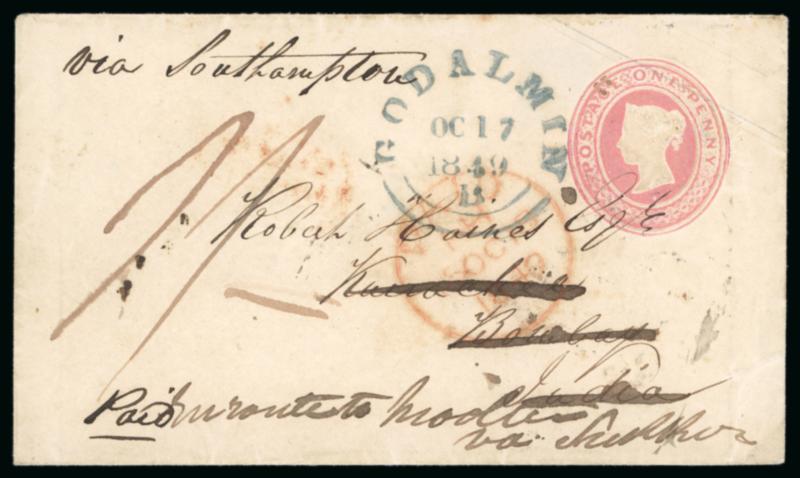 via Southampton
GODALMIN
OC 17
1849
B
POSTAGE ONE PENNY
1/-
Robert Haines Esqre
Kurrachee
Bombay
India
Paid
Enroute to Mooltan
via Sukkur